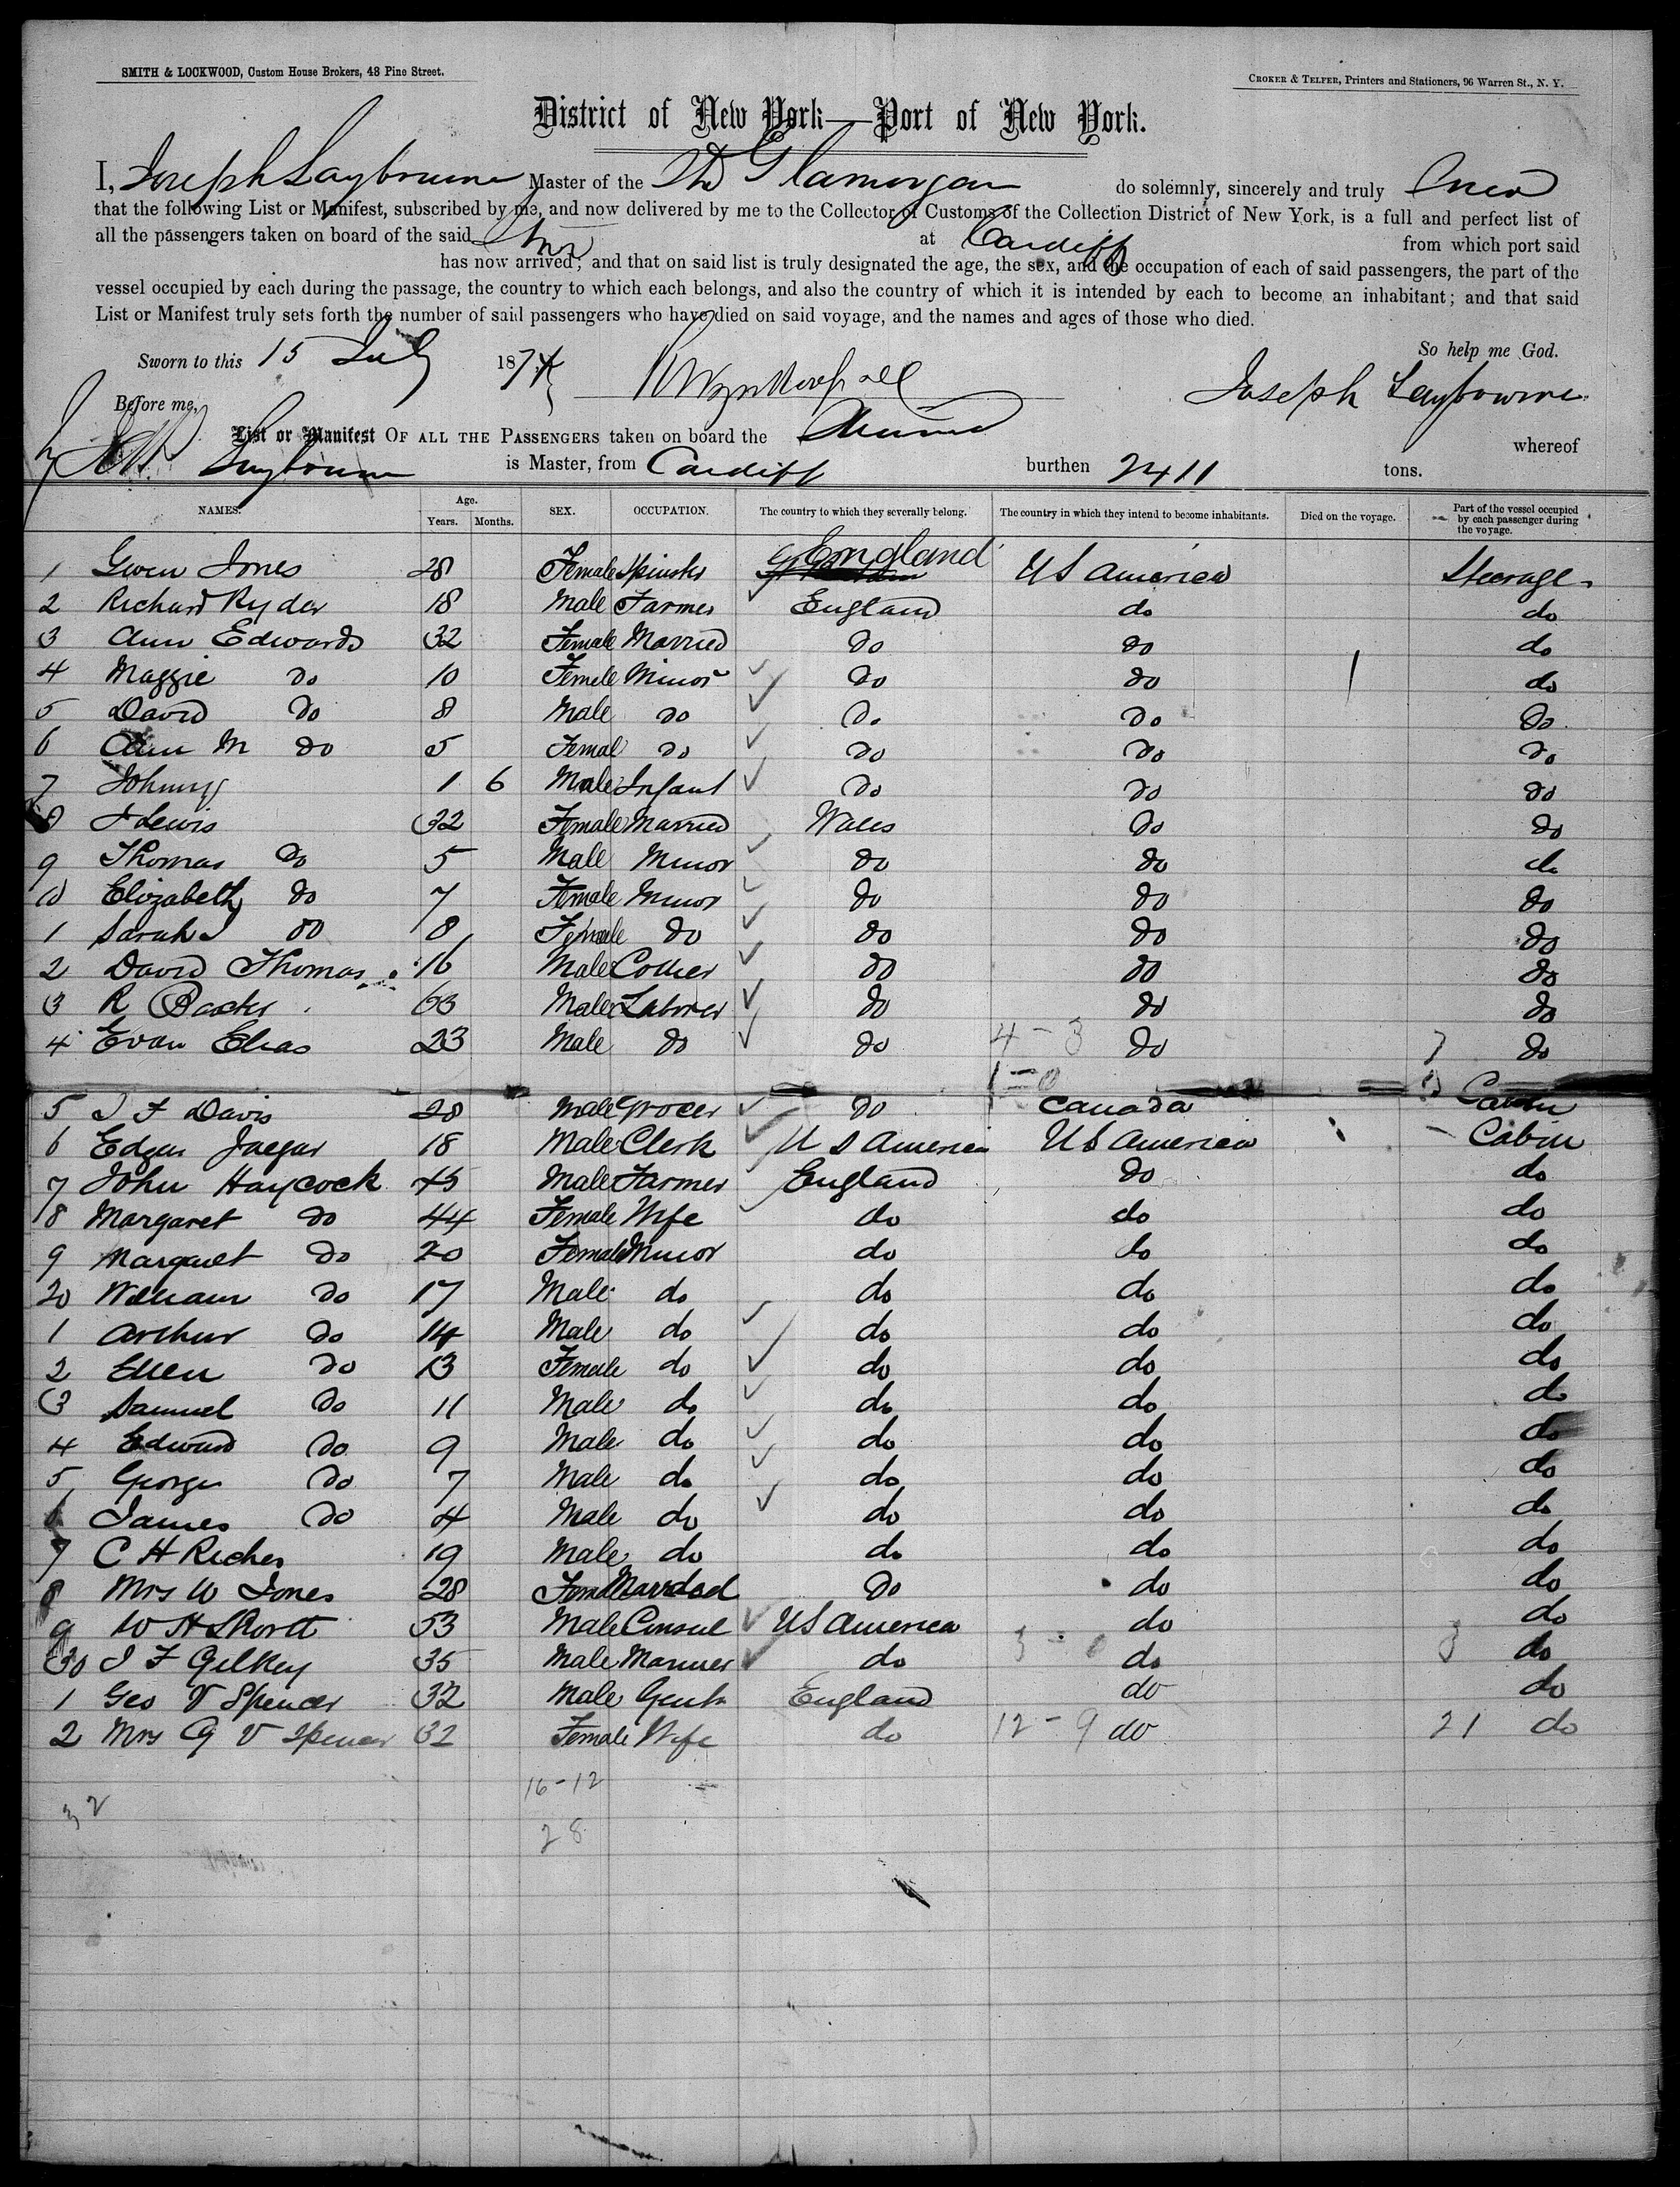 SMITH & LOCKWOOD, Custom House Brokers, 48 Pine Street.
CROKER & TELFER, Printers and Stationers, 96 Warren St., N. Y.
District of New York—Port of New York.
I, Joseph Laybourne Master of the Str Glamorgan do solemnly, sincerely and truly swear
that the following List or Manifest, subscribed by me, and now delivered by me to the Collector of Customs of the Collection District of New York, is a full and perfect list of
all the passengers taken on board of the said Str at Cardiff from which port said
has now arrived; and that on said list is truly designated the age, the sex, and the occupation of each of said passengers, the part of the
vessel occupied by each during the passage, the country to which each belongs, and also the country of which it is intended by each to become an inhabitant; and that said
List or Manifest truly sets forth the number of said passengers who have died on said voyage, and the names and ages of those who died.
So help me God.
Sworn to this 15 July 1874
Joseph Laybourne
Before me,
List or Manifest OF ALL THE PASSENGERS taken on board the whereof
Laybourne is Master, from Cardiff burthen 2411 tons.
NAMES. Age. Years. Months. SEX. OCCUPATION. The country to which they severally belong. The country in which they intend to become inhabitants. Died on the voyage. Part of the vessel occupied by each passenger during the voyage.
1 Gwen Jones 28 Female Spinster England US America Steerage
2 Richard Ryder 18 Male Farmer England do do
3 Ann Edwards 32 Female Married do do do
4 Maggie do 10 Female Minor do do 1 do
5 David do 8 Male do do do do
6 Ann M do 5 Femal do do do do
7 Johnny 1 6 Male Infant do do do
8 Lewis 32 Female Married Wales do do
9 Thomas do 5 Male Minor do do do
10 Elizabeth do 7 Female Minor do do do
1 Sarah J do 8 Female do do do do
2 David Thomas 16 Male Collier do do do
3 R 63 Male Laborer do do do
4 Evan Elias 23 Male do do 4 - 3 do 7 do
1 - 0
5 J F Davis 28 Male Grocer do Canada Cabin
6 Edgar Jaegar 18 Male Clerk U S America US America Cabin
7 John Haycock 45 Male Farmer England do do
8 Margaret do 44 Female Wife do do do
9 Margaret do 20 Female Minor do do do
20 William do 17 Male do do do do
1 Arthur do 14 Male do do do do
2 Ellen do 13 Female do do do do
3 Samuel do 11 Male do do do do
4 Edward do 9 Male do do do do
5 George do 7 Male do do do do
6 James do 4 Male do do do do
7 C H Riches 19 Male do do do do
8 Mrs W Jones 28 Female do do do
9 W H Shortt 53 Male Consul US America do do
30 J F Gilkey 35 Male Mariner do 3 - 0 do 3 do
1 Geo V Spencer 32 Male Gent England do do
2 Mrs G V Spencer 32 Female Wife do 12 - 9 do 21 do
16 - 12
32
28